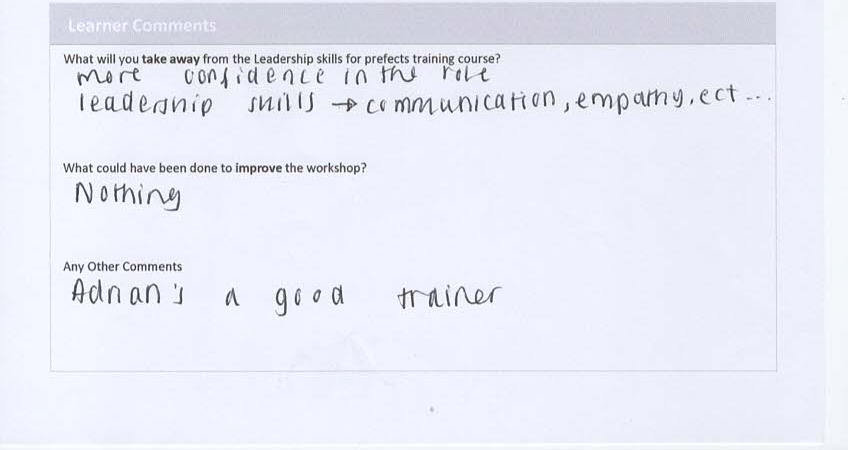 Learner Comments
What will you take away from the Leadership skills for prefects training course?
more confidence in the role
leadership skills → communication, empathy, ect...
What could have been done to improve the workshop?
Nothing
Any Other Comments
Adrian's a good trainer